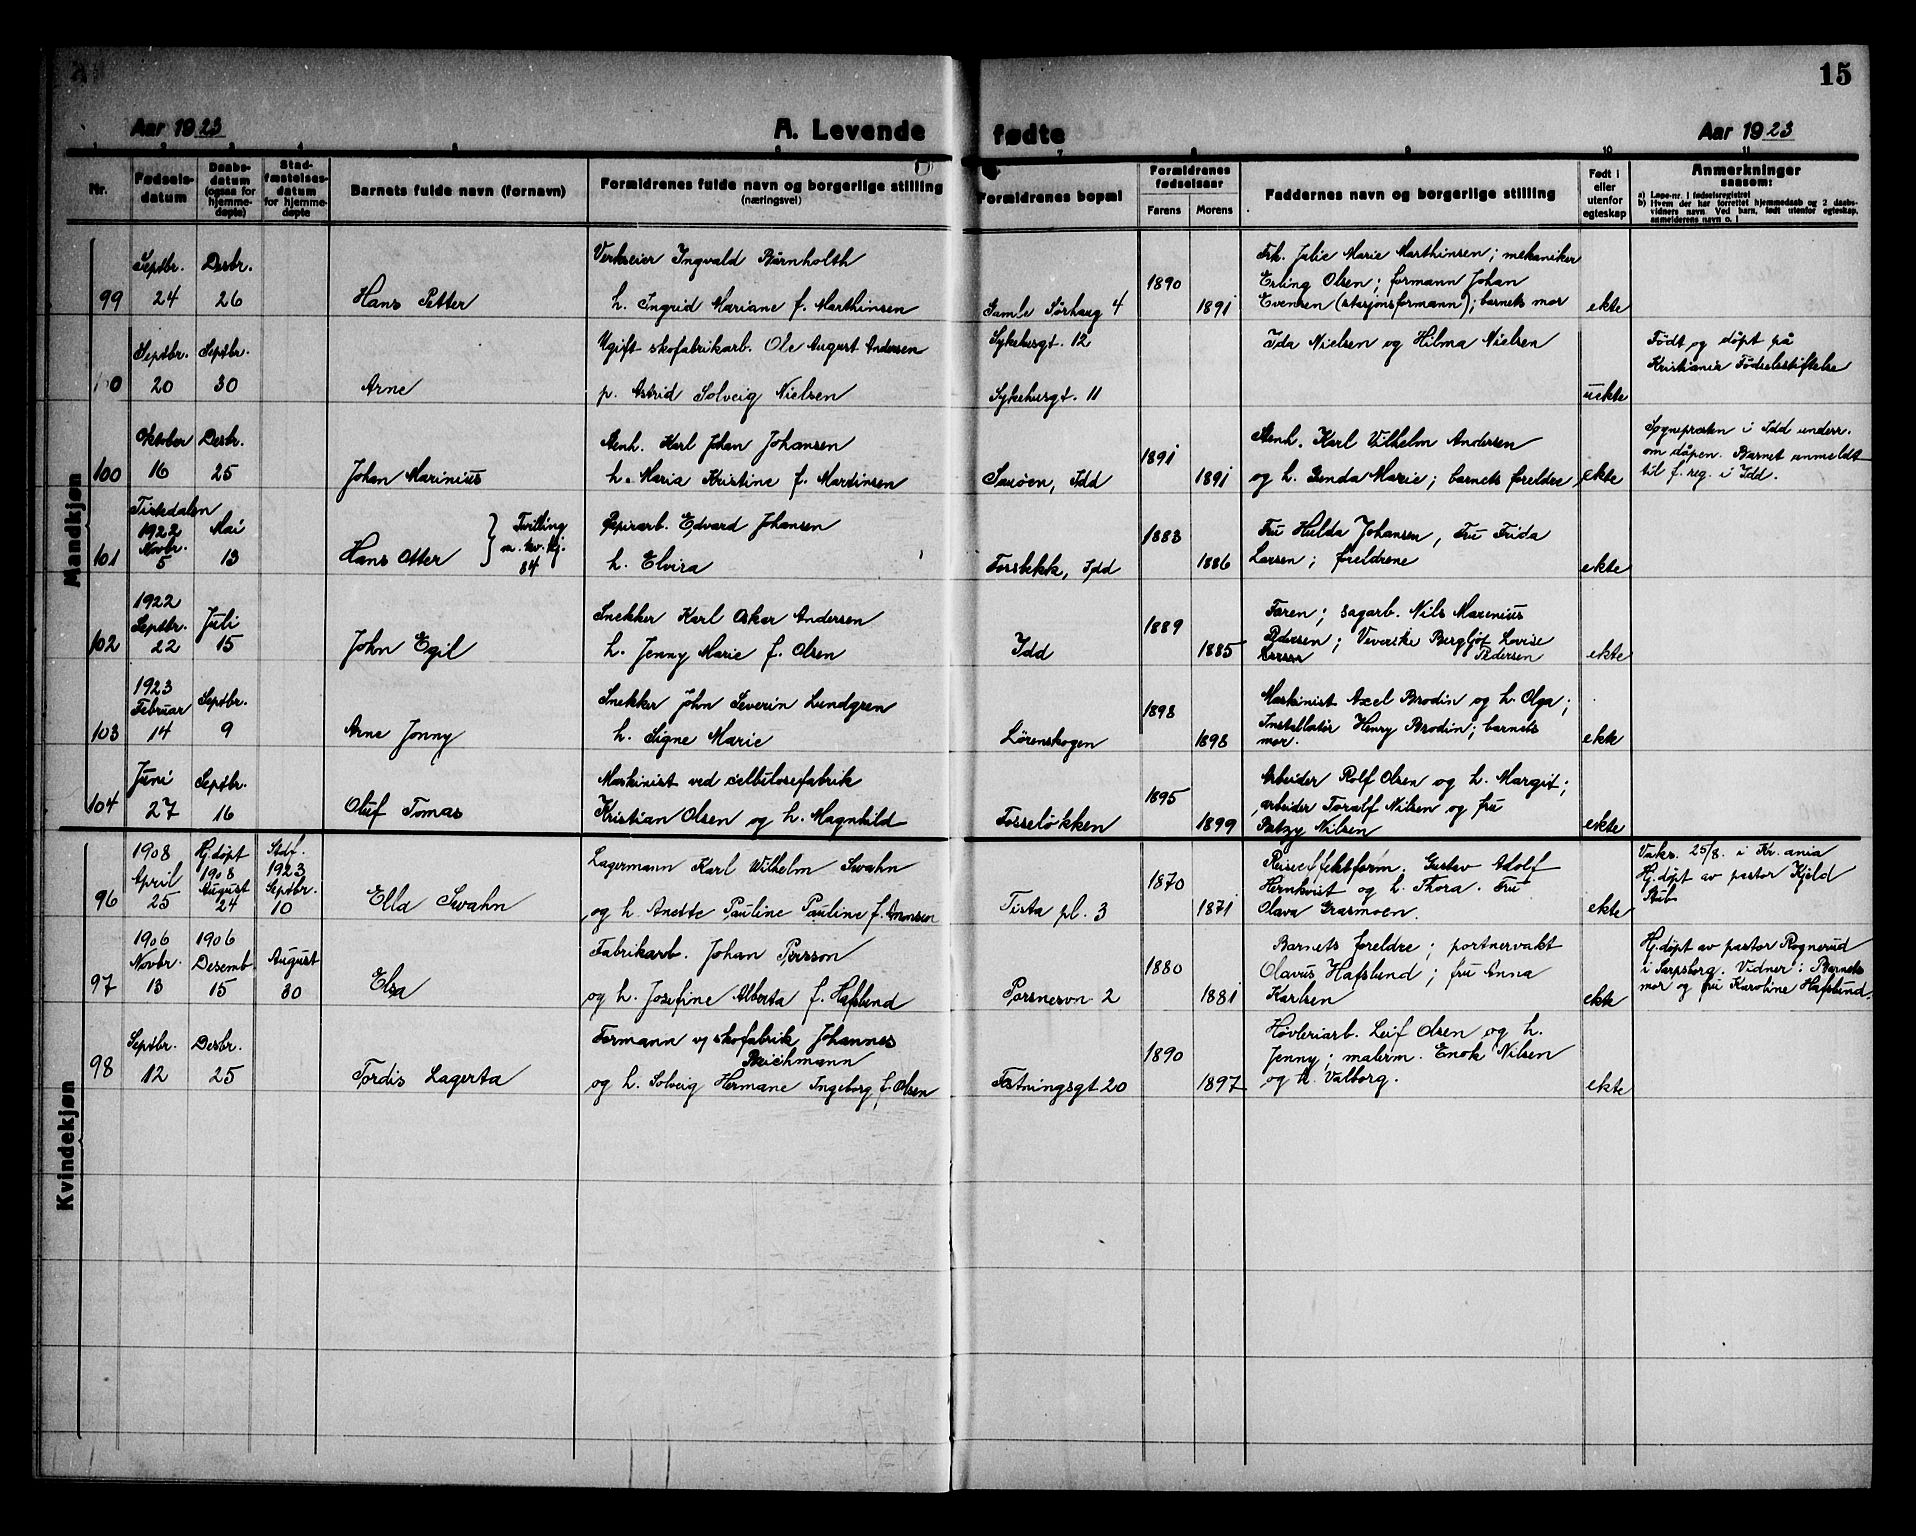 15
Aar 1923
A. Levende fødte
Aar 1923
1 2 3 4 5 6 7 8 9 10 11
Nr.
Fødsels-
datum
Daabs-
datum
(ogsaa for
hjemme-
døpte)
Stad-
fæstelses-
datum
for hjemme-
døpte
Barnets fulde navn (fornavn)
Forældrenes fulde navn og borgerlige stilling
(næringsvei)
Forældrenes bopæl
Forældrenes
fødselsaar
Farens Morens
Faddernes navn og borgerlige stilling
Født i
eller
utenfor
egteskap
Anmerkninger
saasom:
a) Løpe-nr. i fødselsregistret
b) Hvem der har forrettet hjemmedaab og 2 daabs-
vidners navn. Ved barn, født utenfor egteskap,
anmelderens navn o. l
Mandkjøn
99
Septbr.
24
Desbr.
26
Hans Petter
Verkseier Ingvald Bjørnholth
h. Ingrid Mariane f. Marthinsen
Gamle Sørhaug 4
1890
1891
Frk. Julie Marie Marthinsen; mekaniker
Erling Olsen; formann Johan
Evensen (stasjonsformann); barnets mor
ekte
100
Septbr.
20
Septbr.
30
Arne
Ugift skofabrikarb. Ole August Andersen
p. Astrid Solveig Nielsen
Sykehusgt. 12
Sykehusgt. 11
Ida Nielsen og Hilma Nielsen
uekte
Født og døpt på
Kristiania Fødselsstiftelse
100
Oktober
16
Desbr.
25
Johan Marinius
Stenh. Karl Johan Johansen
h. Maria Kristine f. Martinsen
Sauøen, Idd
1891
1891
Stenh. Karl Vilhelm Andersen
og h. Gunda Marie; barnets foreldre
ekte
Sognepresten i Idd underr.
om dåpen. Barnet anmeldt
til f. reg. i Idd.
101
Tistedalen
1922
Novbr.
5
Mai
13
Hans Otter
Tvilling
m. kv. kj.
84
Papirarb. Edvard Johansen
h. Elvira
Forsbekk, Idd
1883
1886
Fru Hulda Johansen, Fru Frida
Larsen; foreldrene
ekte
102
1922
Septbr.
22
Juli
15
John Egil
Snekker Karl Oskar Andersen
h. Jenny Marie f. Olsen
Idd
1889
1885
Faren; sagarb. Nils Marenius
Pedersen; Veverske Bergljot Lovise
Pedersen
ekte
103
1923
Februar
14
Septbr.
9
Arne Jonny
Snekker John Severin Lundgren
h. Signe Marie
Lørenskogen
1898
1898
Maskinist Axel Brodin og h. Olga;
Installatør Henry Brodin; barnets
mor.
ekte
104
Juni
27
Septbr.
16
Oluf Tomas
Maskinist ved cellulosefabrik
Kristian Olsen og h. Magnhild
Fosseløkken
1895
1899
Arbeider Rolf Olsen og h. Margit;
arbeider Toralf Nilsen og fru
Betzy Nilsen
ekte
Kvindekjøn
96
1908
April
25
Hj. døpt
1908
August
24
Stdf.
1923
Septbr.
10
Ella Swahn
Lagermann Karl Wilhelm Swahn
og h. Anette Pauline Pauline f. Amnsen
Tista pl. 3
1870
1871
Gustav Adolf
Hernkvist og h. Thora. Fru
Olava Grasmoen.
ekte
Vaks. 25/8. i Kr.ania
Hj. døpt av pastor Kjeld
Stub
97
1906
Novbr.
13
1906
Desemb.
15
August
30
Elsa
Fabrikarb. Johan Persson
og h. Josefine Alberta f. Hafslund
Porsnesvn 2
1880
1881
Barnets foreldre; portnervakt
Olavus Hafslund; fru Anna
Karlsen
ekte
Hj. døpt av pastor Rognerud
i Sarpsborg. Vidner: Barnets
mor og fru Karoline Hafslund.
98
Septbr.
12
Desbr.
25
Tordis Lagerta
Formann v/ skofabrik Johannes
Beichmann
og h. Solveig Hermane Ingeborg f. Olsen
Festningsgt 20
1890
1897
Høvleriarb. Leif Olsen og h.
Jenny; malerm. Enok Nilsen
og h. Valborg.
ekte